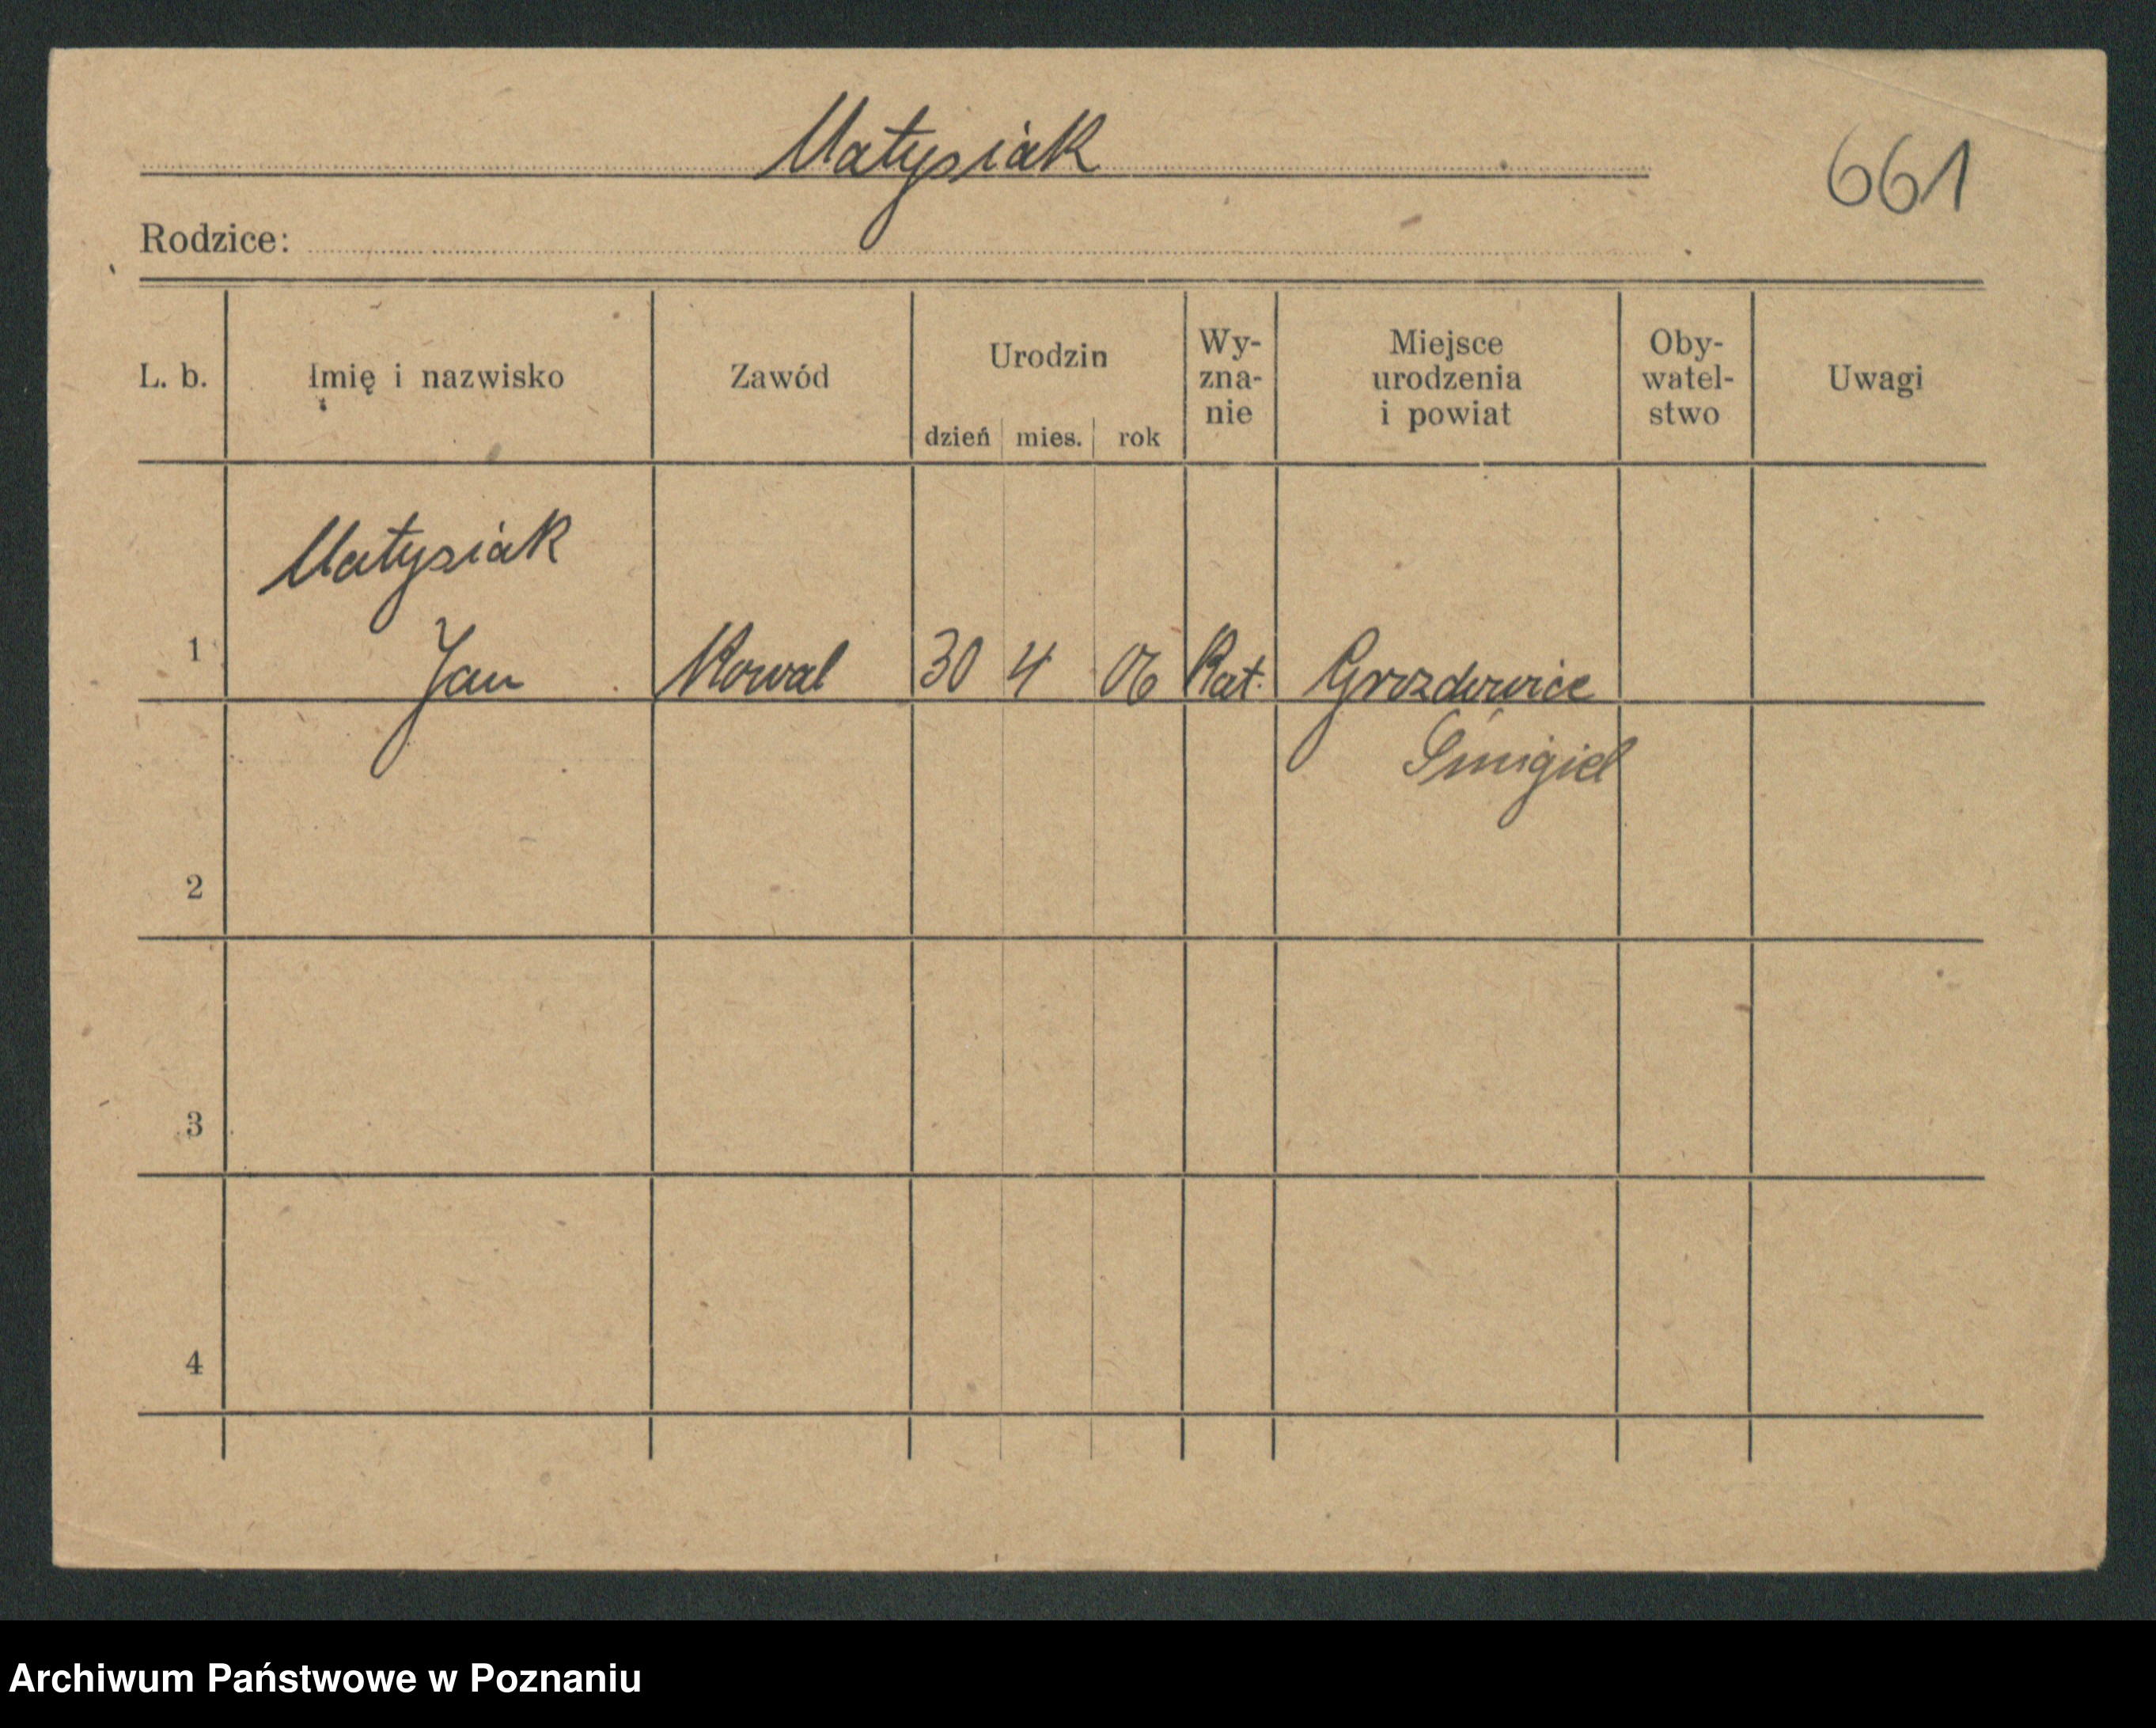 Matysiak
661
Rodzice:
L. b. Imię i nazwisko Zawód Urodzin dzień mies. rok Wy-zna-nie Miejsce urodzenia i powiat Oby-watel-stwo Uwagi
Matysiak
1 Jan Kowal 30 4 06 Kat. Grozdowice
Śmigiel
2
3
4
Archiwum Państwowe w Poznaniu